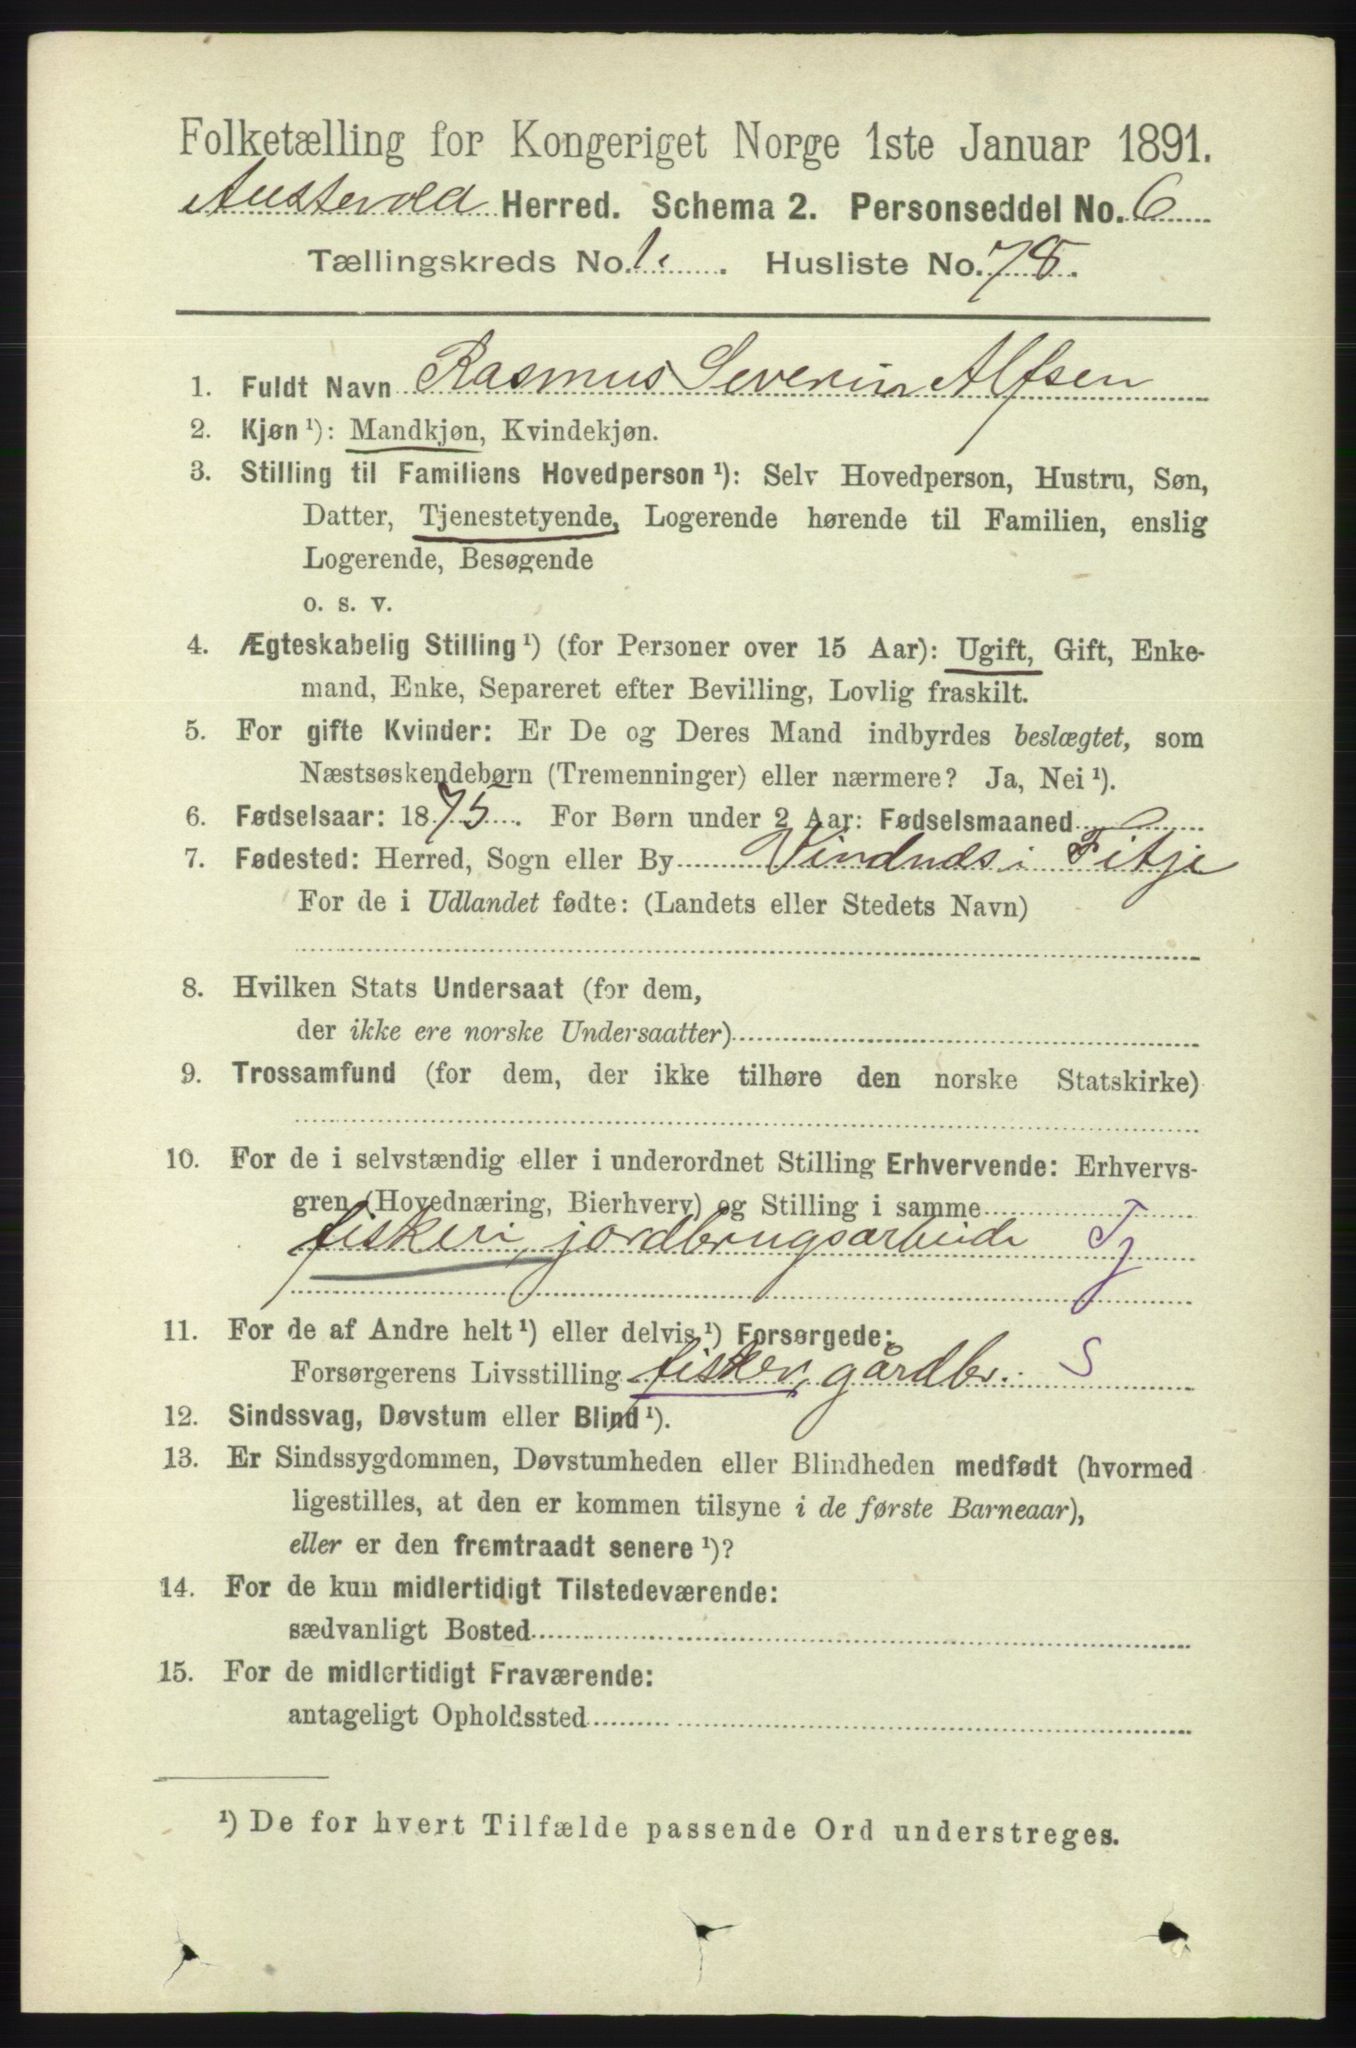 Folketælling for Kongeriget Norge 1ste Januar 1891.
Austevold Herred. Schema 2. Personseddel No. 6
Tællingskreds No. 1. Husliste No. 78.
1. Fuldt Navn Rasmus Severin Alfsen
2. Kjøn ¹): Mandkjøn, Kvindekjøn.
3. Stilling til Familiens Hovedperson ¹): Selv Hovedperson, Hustru, Søn,
Datter, Tjenestetyende, Logerende hørende til Familien, enslig
Logerende, Besøgende
o. s. v.
4. Ægteskabelig Stilling ¹) (for Personer over 15 Aar): Ugift, Gift, Enke-
mand, Enke, Separeret efter Bevilling, Lovlig fraskilt.
5. For gifte Kvinder: Er De og Deres Mand indbyrdes beslægtet, som
Næstsøskendebørn (Tremenninger) eller nærmere? Ja, Nei ¹).
6. Fødselsaar: 1875. For Børn under 2 Aar: Fødselsmaaned
7. Fødested: Herred, Sogn eller By i Fitje
For de i Udlandet fødte: (Landets eller Stedets Navn)
8. Hvilken Stats Undersaat (for dem,
der ikke ere norske Undersaatter)
9. Trossamfund (for dem, der ikke tilhøre den norske Statskirke)
10. For de i selvstændig eller i underordnet Stilling Erhvervende: Erhvervs-
gren (Hovednæring, Bierhverv) og Stilling i samme
fiskeri, jordbrugsarbeide Tj
11. For de af Andre helt ¹) eller delvis ¹) Forsørgede:
Forsørgerens Livsstilling fisker, gårdbr. S
12. Sindssvag, Døvstum eller Blind ¹).
13. Er Sindssygdommen, Døvstumheden eller Blindheden medfødt (hvormed
ligestilles, at den er kommen tilsyne i de første Barneaar),
eller er den fremtraadt senere ¹)?
14. For de kun midlertidigt Tilstedeværende:
sædvanligt Bosted
15. For de midlertidigt Fraværende:
antageligt Opholdssted
¹) De for hvert Tilfælde passende Ord understreges.